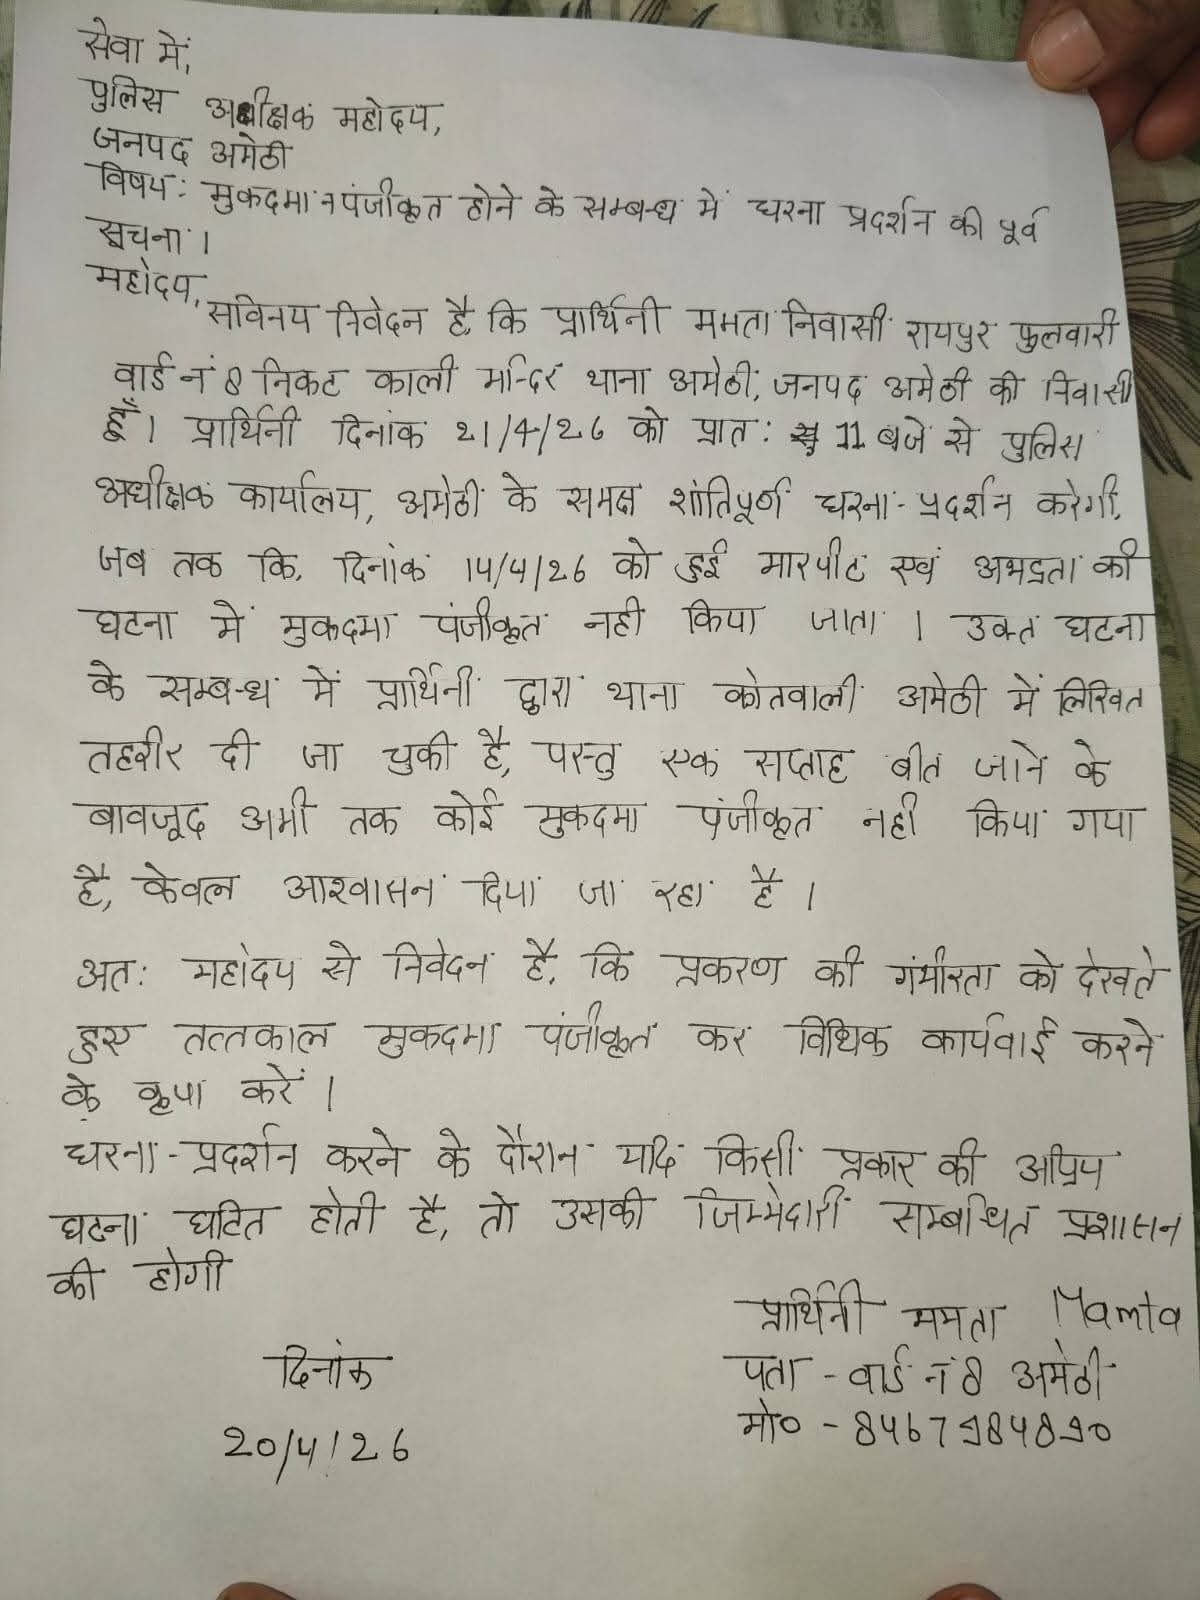 सेवा में,
पुलिस अधीक्षक महोदय,
जनपद अमेठी
विषय: मुकदमा न पंजीकृत होने के सम्बन्ध में धरना प्रदर्शन की पूर्व
सूचना।
महोदय,
सविनय निवेदन है, कि प्रार्थिनी ममता निवासी रायपुर फुलवारी
वार्ड नं 8 निकट काली मन्दिर थाना अमेठी, जनपद अमेठी की निवासी
हूँ। प्रार्थिनी दिनांक 21/4/26 को प्रात: 11 बजे से पुलिस
अधीक्षक कार्यालय, अमेठी के समक्ष शांतिपूर्ण धरना-प्रदर्शन करेगी,
जब तक कि, दिनांक 14/4/26 को हुई मारपीट एवं अभद्रता की
घटना में मुकदमा पंजीकृत नही किया जाता । उक्त घटना
के सम्बन्ध में प्रार्थिनी द्वारा थाना कोतवाली अमेठी में लिखित
तहरीर दी जा चुकी है, परन्तु एक सप्ताह बीत जाने के
बावजूद अभी तक कोई मुकदमा पंजीकृत नही किया गया
है, केवल आश्वासन दिया जा रहा है ।
अत: महोदय से निवेदन है, कि प्रकरण की गंभीरता को देखते
हुए तत्तकाल मुकदमा पंजीकृत कर विधिक कार्यवाई करने
के कृपा करें ।
धरना-प्रदर्शन करने के दौरान यदि किसी प्रकार की अप्रिय
घटना घटित होती है, तो उसकी जिम्मेदारी सम्बन्धित प्रशासन
की होगी
प्रार्थिनी ममता Mamta
पता - वार्ड नं 8 अमेठी
मो० -
दिनांक
20/4/26